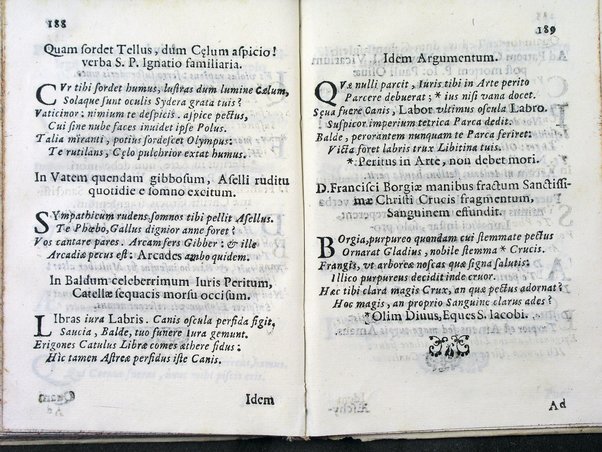 188
Quam sordet Tellus, dum Cęlum aspicio!
verba S. P. Ignatio familiaria.
CVr tibi sordet humus, lustras dum lumine Cælum,
Solaque sunt oculis Sydera grata tuis?
Vaticinor: nimium te despicis. aspice pectus,
Cui sine nube faces inuidet ipse Polus.
Talia miranti, potius sordescet Olympus:
Te rutilans, Cęlo pulchrior extat humus.
In Vatem quendam gibbosum, Aselli ruditu
quotidie e somno excitum.
SYmpathicum rudens, somnos tibi pellit Asellus.
Te Phœbo, Gallus dignior anne foret?
Vos cantare pares. Arcam fers Gibber: & ille
Arcadiæ pecus est: Arcades ambo quidem.
In Baldum celeberrimum Iuris Peritum,
Catellæ sequacis morsu occisum.
LIbras iura Labris. Canis oscula perfida figit,
Saucia, Balde, tuo funere Iura gemunt.
Erigones Catulus Libræ comes æthere fidus:
Hic tamen Astreæ perfidus iste Canis.
Idem
189
Idem Argumentum.
QVæ nulli parcit, Iuris tibi in Arte perito
Parcere debuerat; * ius nisi vana docet.
Sęua fuere Canis, Labor vltimus oscula Labro.
Suspicor imperium tetrica Parca dedit.
Balde, perorantem nunquam te Parca feriret:
Victa foret labris trux Libitina tuis.
* Peritus in Arte, non debet mori.
D. Francisci Borgiæ manibus fractum Sanctissi-
mæ Christi Crucis fragmentum,
Sanguinem effundit.
BOrgia, purpureo quondam cui stemmate pectus
Ornarat Gladius, nobile stemma * Crucis.
Frangis, vt arboreæ noscas quæ signa salutis:
Illico purpureus decidit inde cruor.
Hæc tibi clara magis Crux, an quæ pectus adornat?
Hoc magis, an proprio Sanguine clarus ades?
* Olim Diuus, Eques S. Iacobi.
Ad